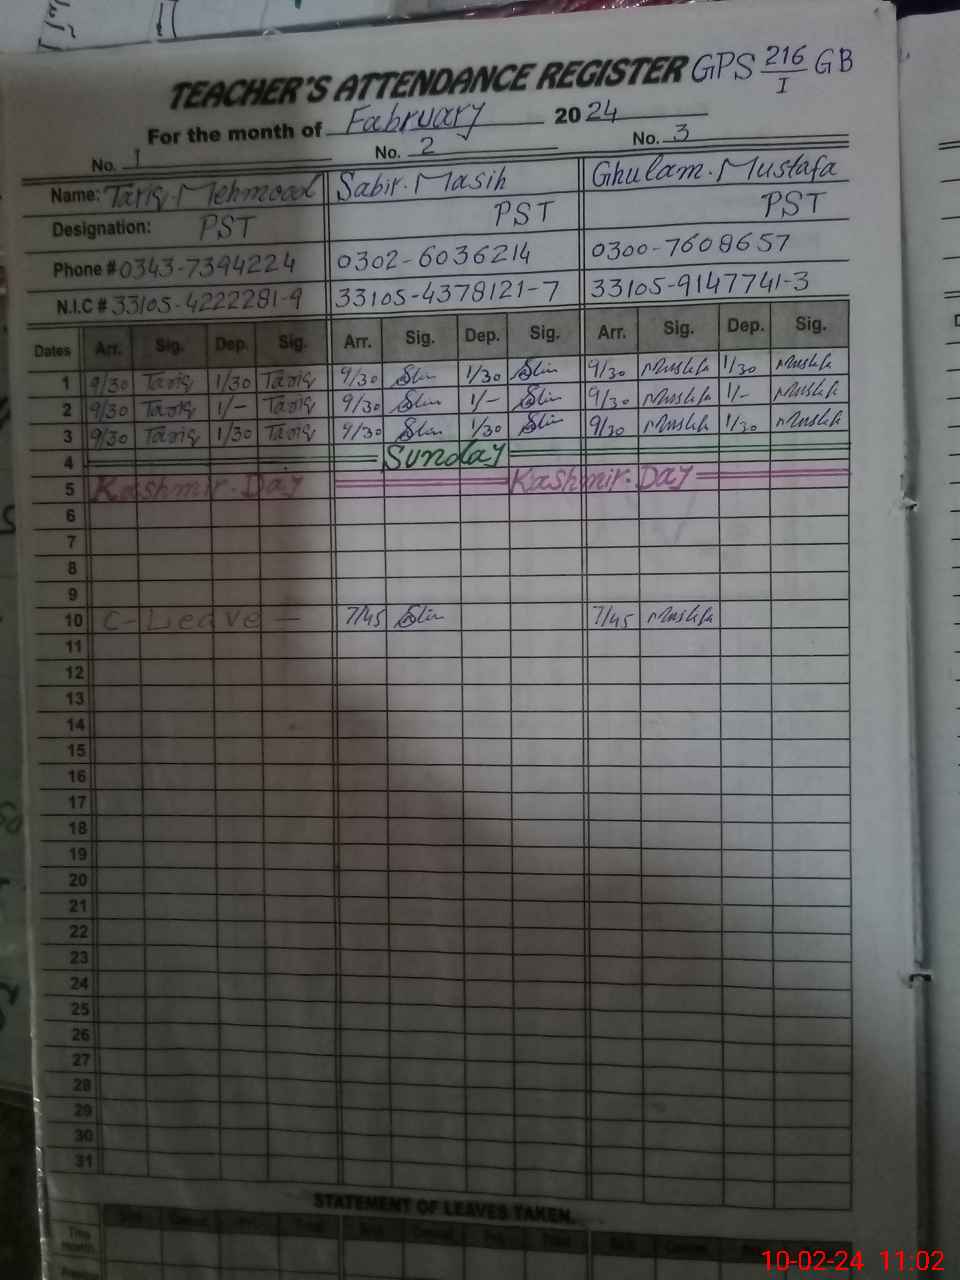 TEACHER'S ATTENDANCE REGISTER GPS 216/I GB
For the month of Fabruary 2024
No. 1 No. 2 No. 3
Name: Tariq.Mehmood Sabir.Masih Ghulam.Mustafa
Designation: PST PST PST
Phone # 0343-7394224 0302-6036214 0300-7608657
N.I.C # 33105-4222281-9 33105-4378121-7 33105-9147741-3
Dates Arr. Sig. Dep. Sig. Arr. Sig. Dep. Sig. Arr. Sig. Dep. Sig.
1 9/30 Tariq 1/30 Tariq 9/30 1/30 9/30 1/30
2 9/30 Tariq 1/- Tariq 9/30 1/- 9/30 1/-
3 9/30 Tariq 1/30 Tariq 9/30 1/30 9/30 1/30
4 Sunday
5 Kashmir.Day Kashmir.Day
6
7
8
9
10 C-Leave - 7/45 7/45
11
12
13
14
15
16
17
18
19
20
21
22
23
24
25
26
27
28
29
30
31
STATEMENT OF LEAVES TAKEN.
This month
10-02-24 11:02